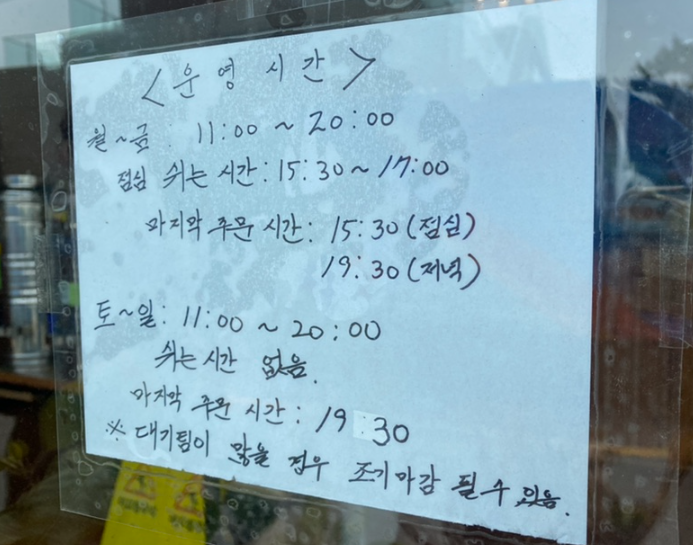 <운영 시간>
월~금: 11:00 ~ 20:00
점심 쉬는 시간: 15:30 ~ 17:00
마지막 주문 시간: 15:30 (점심)
19:30 (저녁)
토~일: 11:00 ~ 20:00
쉬는 시간 없음.
마지막 주문 시간: 19:30
※ 대기팀이 많을 경우 조기마감 될 수 있음.